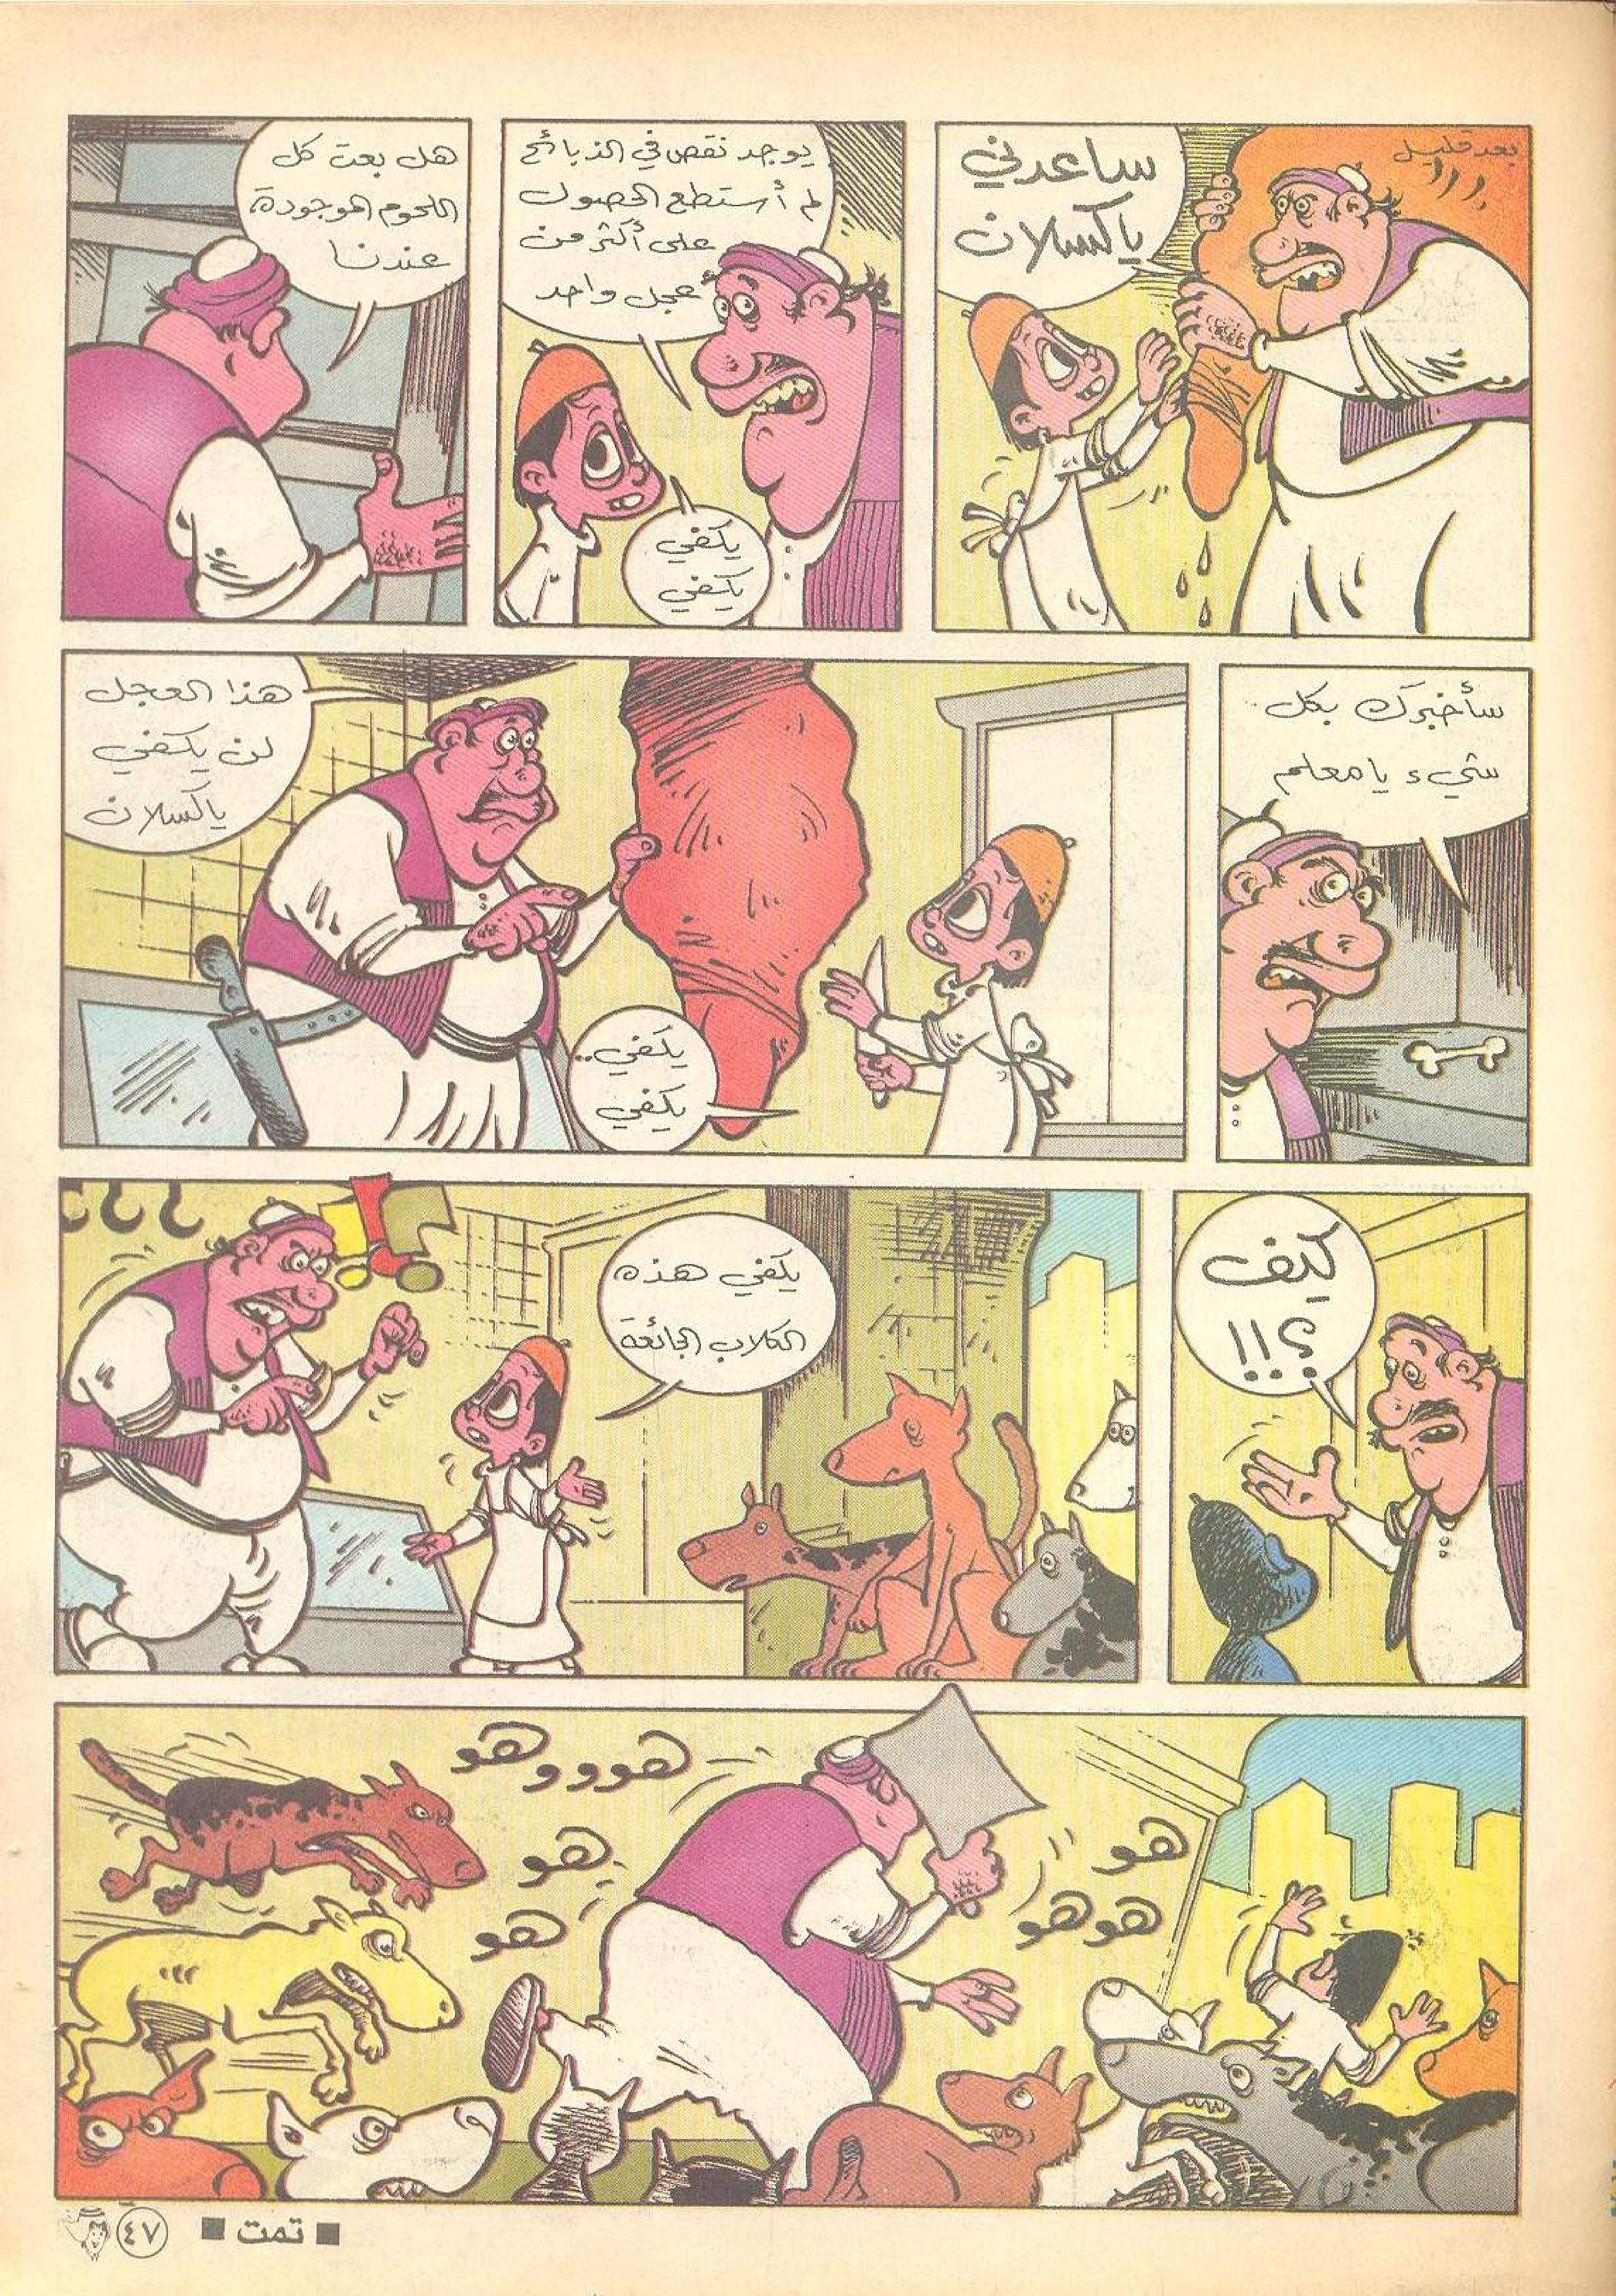 بعد قليل
ساعدني
ياكسلان
يوجد نقص في الذبائح
لم أستطع الحصول
على أكثر من
عجل واحد
يكفي
يكفي
هل بعت كل
اللحوم الموجودة
عندنا
سأخبرك بكل
شيء يا معلم
هذا العجل
لن يكفي
ياكسلان
يكفي..
يكفي
كيف
؟!!
يكفي هذه
الكلاب الجائعة
هوووهو
هو
هو
هو
هوهو
■ تمت ■
٤٧